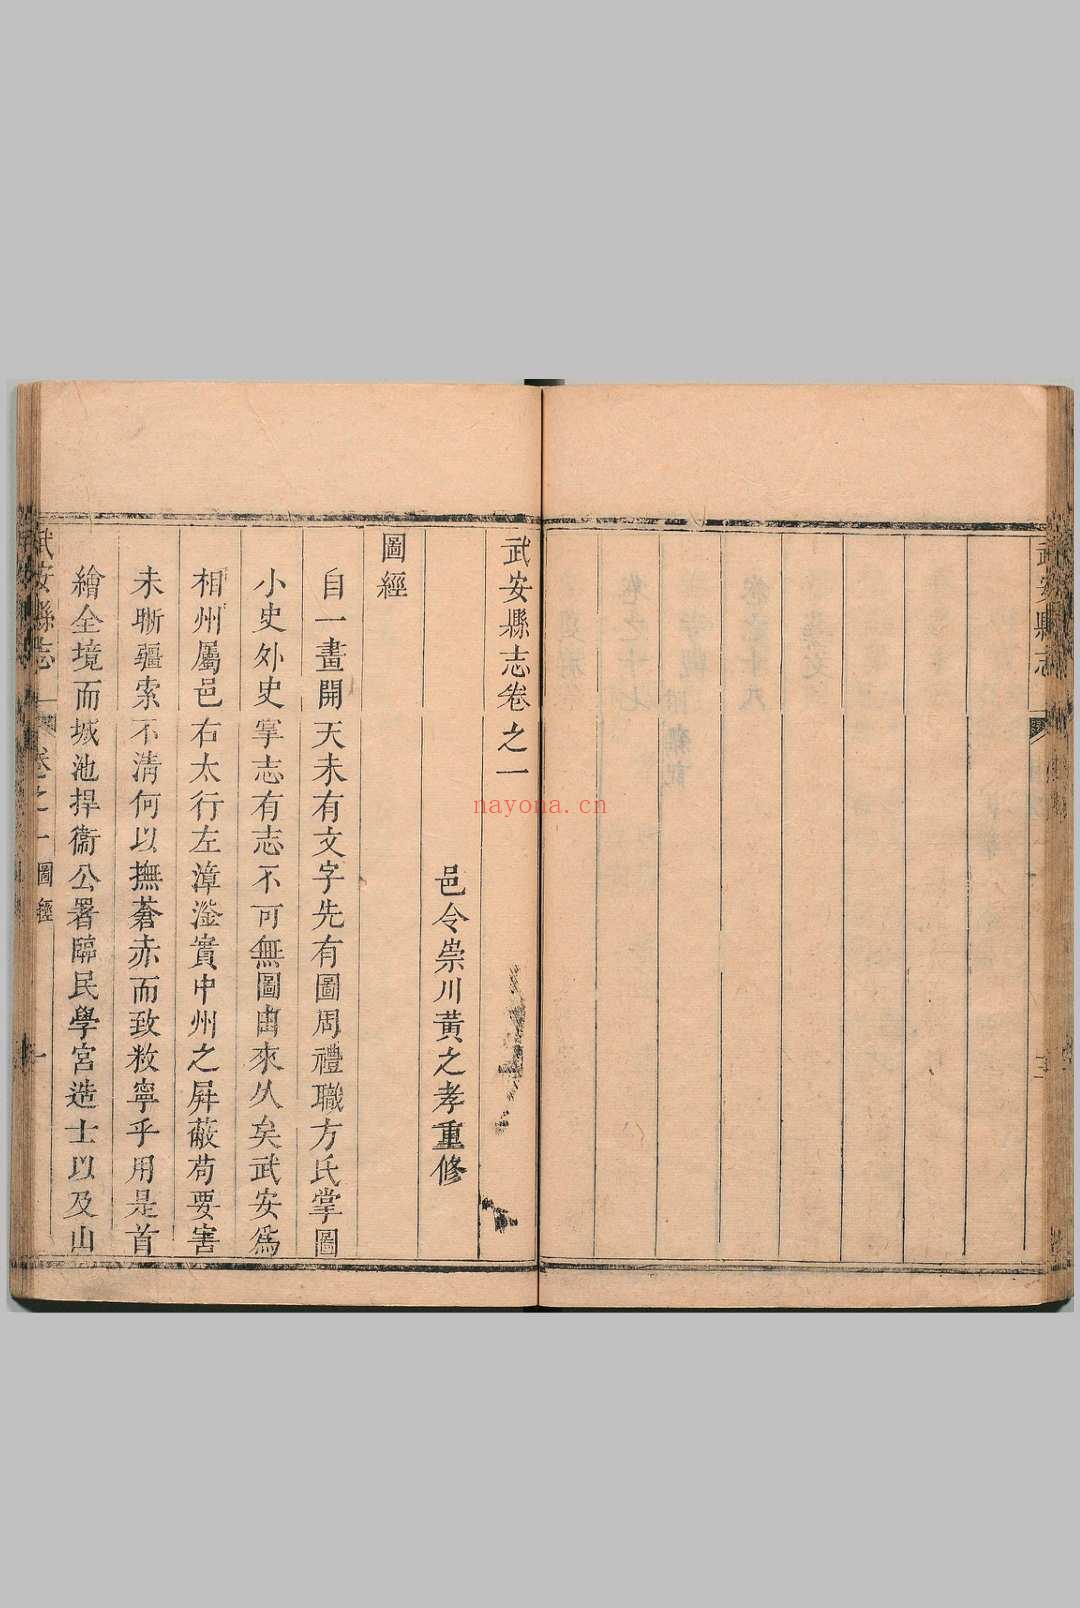 武安縣志
武安縣志卷之一
邑令崇川黃之孝重修
圖經
自一畫開天未有文字先有圖周禮職方氏掌圖
小史外史掌志有志不可無圖由來久矣武安爲
相州屬邑右太行左漳滏實中州之屛蔽苟要害
未晣疆索不淸何以撫蒼赤而致敉寧乎用是首
繪全境而城池捍衞公署臨民學宮造士以及山
武安縣志 卷之一 圖經 一
nayona.cn